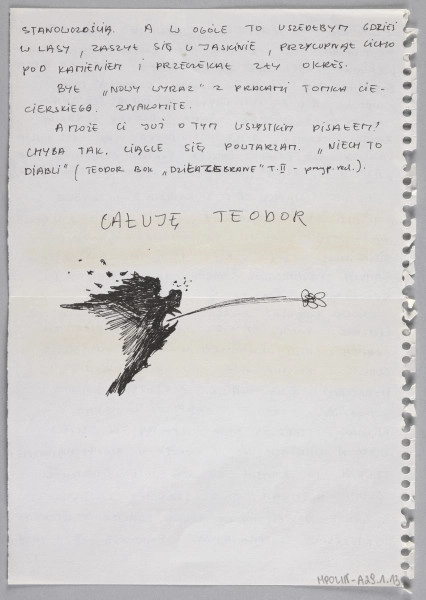 STANOWCZOŚCIĄ. A W OGÓLE TO USZEDŁBYM GDZIEŚ
W LASY, ZASZYŁ SIĘ W JASKINIE, PRZYCUPNĄŁ CICHO
POD KAMIENIEM I PRZECZEKAŁ ZŁY OKRES.
BYŁ „NOWY WYRAZ" Z PRACAMI TOMKA CIE-
CIERSKIEGO. ZNAKOMITE.
A MOŻE CI JUŻ O TYM WSZYSTKIM PISAŁEM?
CHYBA TAK. CIĄGLE SIĘ POWTARZAM. „NIECH TO
DIABLI" (TEODOR BOK „DZIEŁA ZEBRANE" T.II - przyp. red.).
CAŁUJĘ TEODOR
MPOLIN-A29.1.13